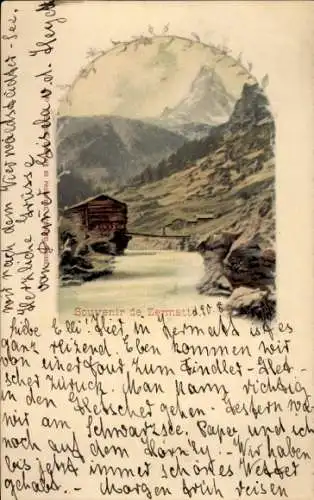 Souvenir de Zermatt
d. 20. 8.
Liebe Elli! Hier in Zermatt ist es
ganz reizend. Eben kommen wir
von einer Tour zum Findler-Glet-
scher zurück. Man kann richtig
in den Gletscher gehen. Gestern wa
wir am Schwarzsee. Papa und ich
noch auf dem Hörnly. Wir haben
bis jetzt immer schönes Wetter
gehabt. - Morgen früh reisen
wir nach dem Vierwaldstädter-See.
Herzliche Grüsse
von Deiner Gerda v. d. Heydt